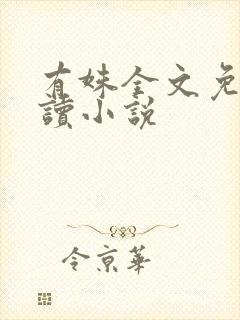 有妹全文免
讀小說
令京華